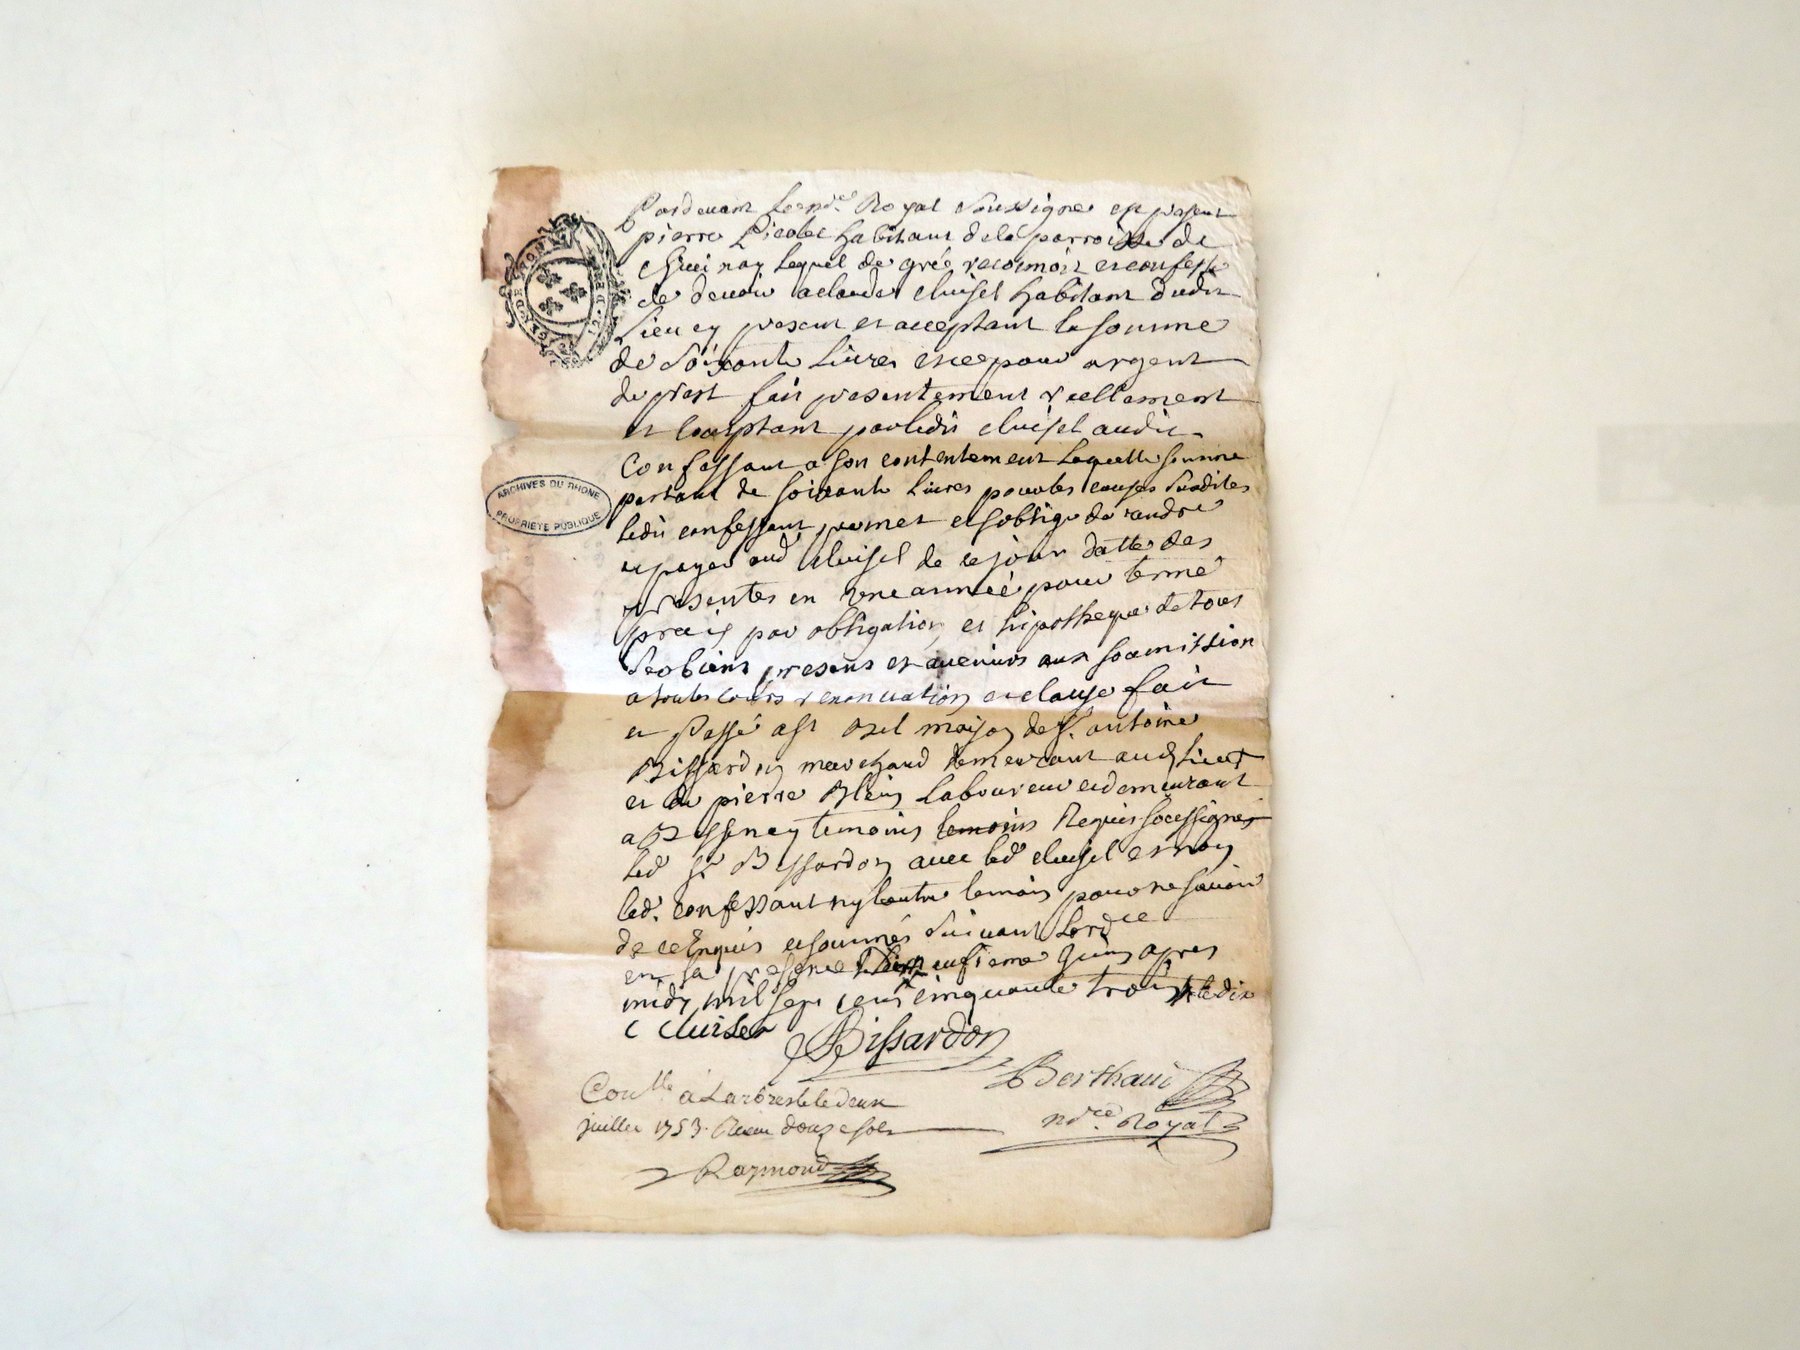 Pardevant le nore Royal soussigné est présent
pierre Picolet habitant de la parroisse de
lequel de gré reconnoit et confesse
de devoir a claude cluisel habitant dudit
Lieu cy present et acceptant la somme
de soixante Livres et ce pour argent
de prest fait presentement reellement
et Comptant par ledit cluisel audit
Confessant a son contentement Laquelle somme
portant de soixante Livres pour les causes susdites
ledit confessant promet et soblige de randre
et payer aud cluisel de ce jour datte des
presentes en une année pour terme
precis par obligation et hipotheque de tous
ses biens presens et avenirs aux soumission
a toutes cours renonciation et clause fait
et Passé aud maison de sr. antoine
Bissardon marchand demeurant aud Lieu
et de pierre Blein Laboureur demeurant
a Bessenay temoins temoins Requis soussignés
led sr Bissardon avec led cluisel et non
led. confessant ny lautre temoin pour ne savoir
de ce Enquis et sommés suivant Lordce
en sa presence neufieme Juin apres
midy mil sept cens cinquante trois
C Cluisel
Bissardon
Berthaud
nore. Royal
Conlle a Larbresle le deux
juillet 1753. Receu douze sols
Raymond
ARCHIVES DU RHONE
PROPRIETE PUBLIQUE